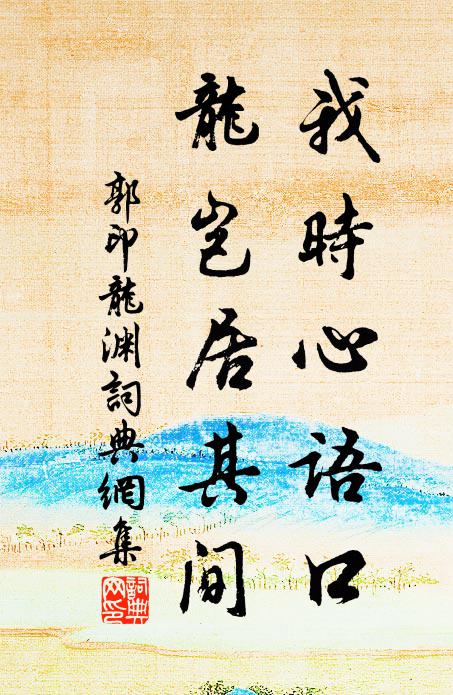 我時心語口
龍豈居其间
郭印龍渊詞典網集
詞典网印